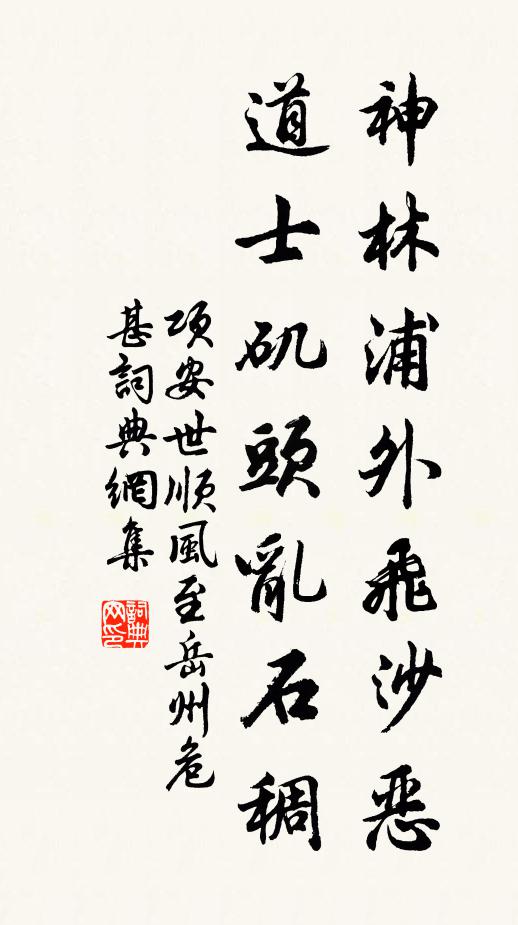 神林浦外飛沙惡
道士矶頭亂石稠
項安世順風至岳州危
甚詞典網集
詞典网印